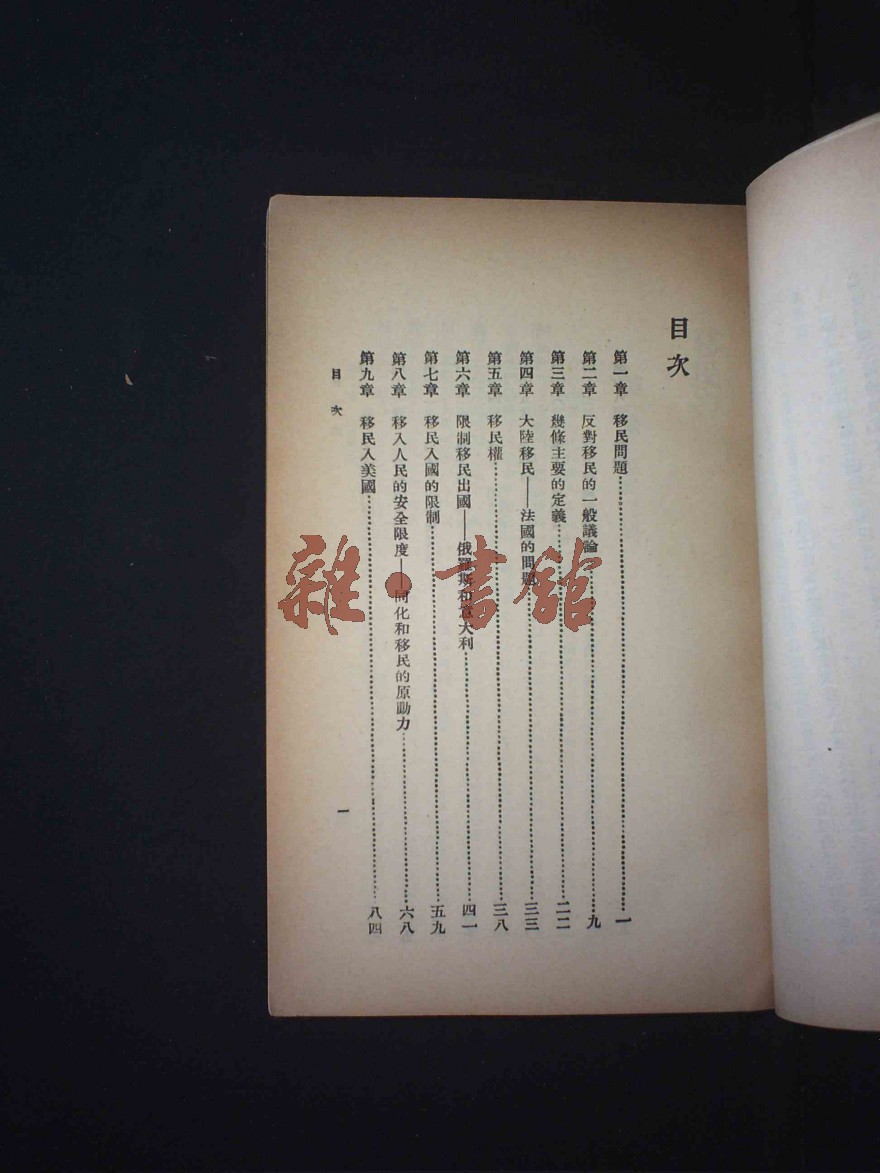 目次
第一章 移民問題……一
第二章 反對移民的一般議論……九
第三章 幾條主要的定義……二二
第四章 大陸移民——法國的問題……三三
第五章 移民權……三八
第六章 限制移民出國——俄羅斯和意大利……四一
第七章 移民入國的限制……五九
第八章 移入人民的安全限度——同化和移民的原動力……六八
第九章 移民入美國……八四
目次
一
雜·書館